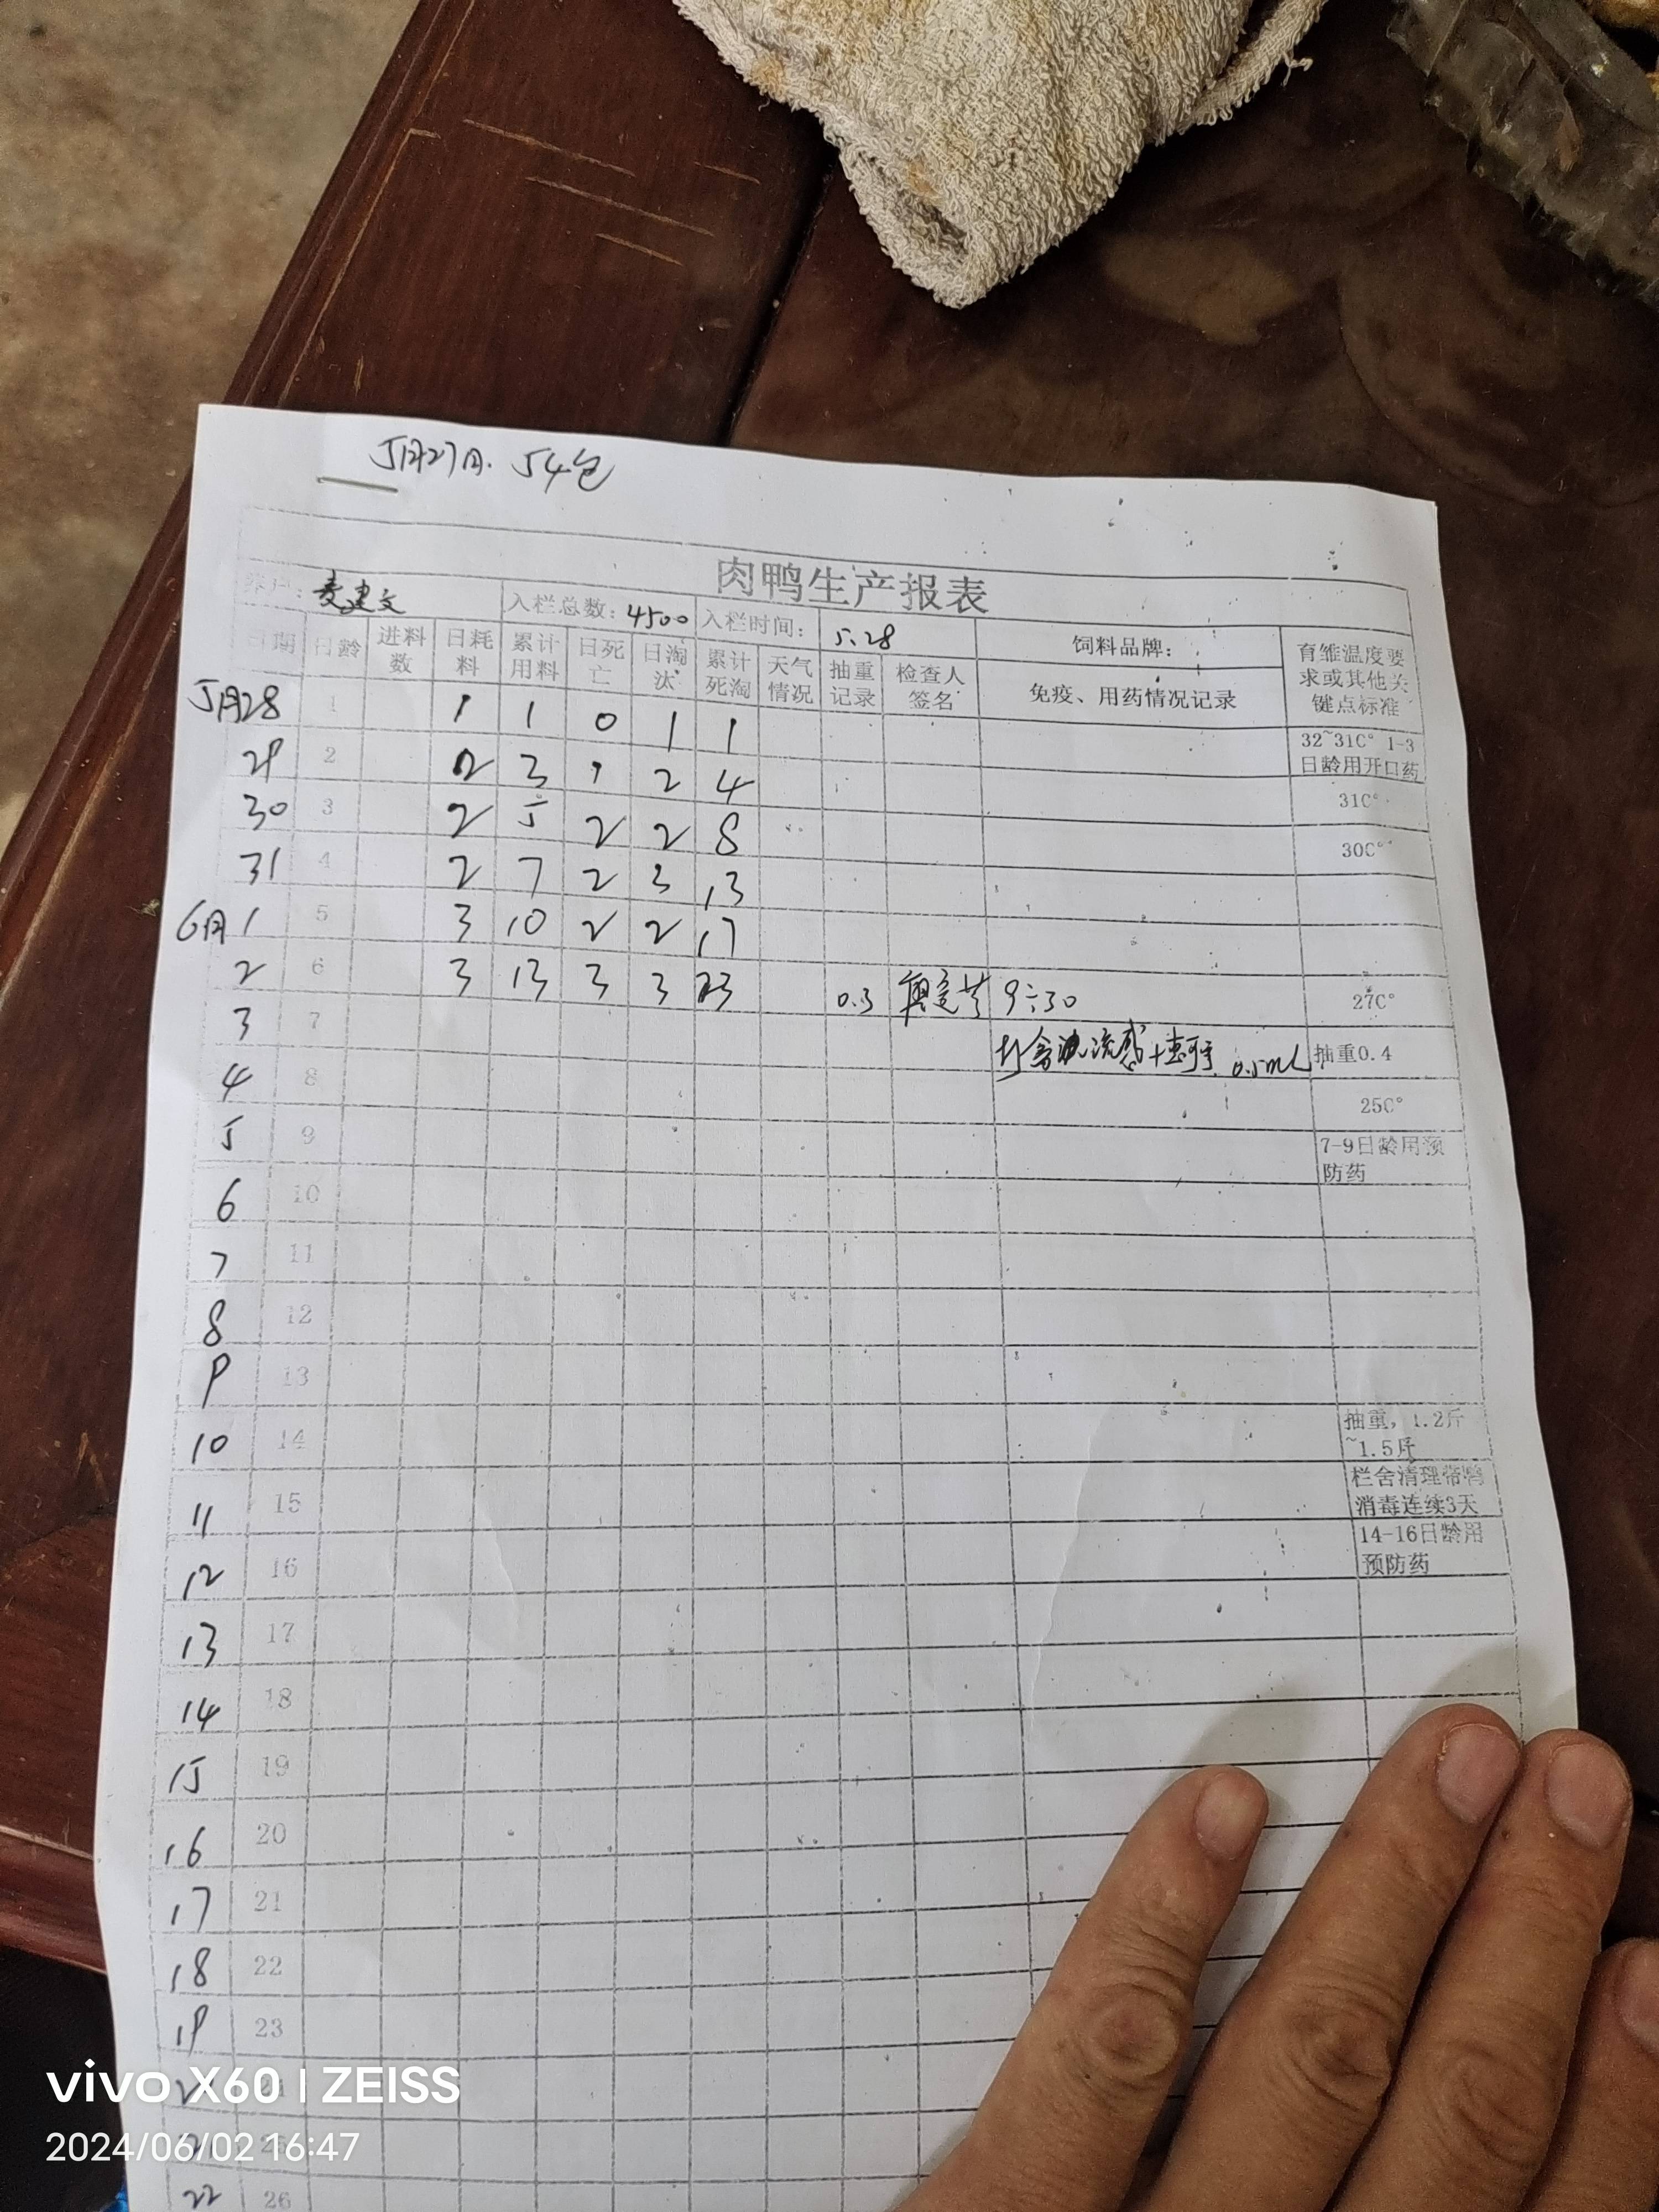 5月27日. 54包
肉鸭生产报表
养户: 麦建文 入栏总数: 4500 入栏时间: 5.28 饲料品牌: 育雏温度要求或其他关键点标准
日期 日龄 进料数 日耗料 累计用料 日死亡 日淘汰 累计死淘 天气情况 抽重记录 检查人签名 免疫、用药情况记录
5月28 1 1 1 0 1 1 32~31C° 1-3日龄用开口药
29 2 2 3 1 2 4 31C°
30 3 2 5 2 2 8 30C°
31 4 2 7 2 3 13
6月1 5 3 10 2 2 17
2 6 3 13 3 3 23 0.3 9:30 27C°
3 7 流感+ 0.5mL 抽重0.4
4 8 25C°
5 9 7-9日龄用预防药
6 10
7 11
8 12
9 13
10 14 抽重, 1.2斤~1.5斤
11 15 栏舍清理带鸭消毒连续3天
12 16 14-16日龄用预防药
13 17
14 18
15 19
16 20
17 21
18 22
19 23
22 26
vivo X60 | ZEISS
2024/06/02 16:47